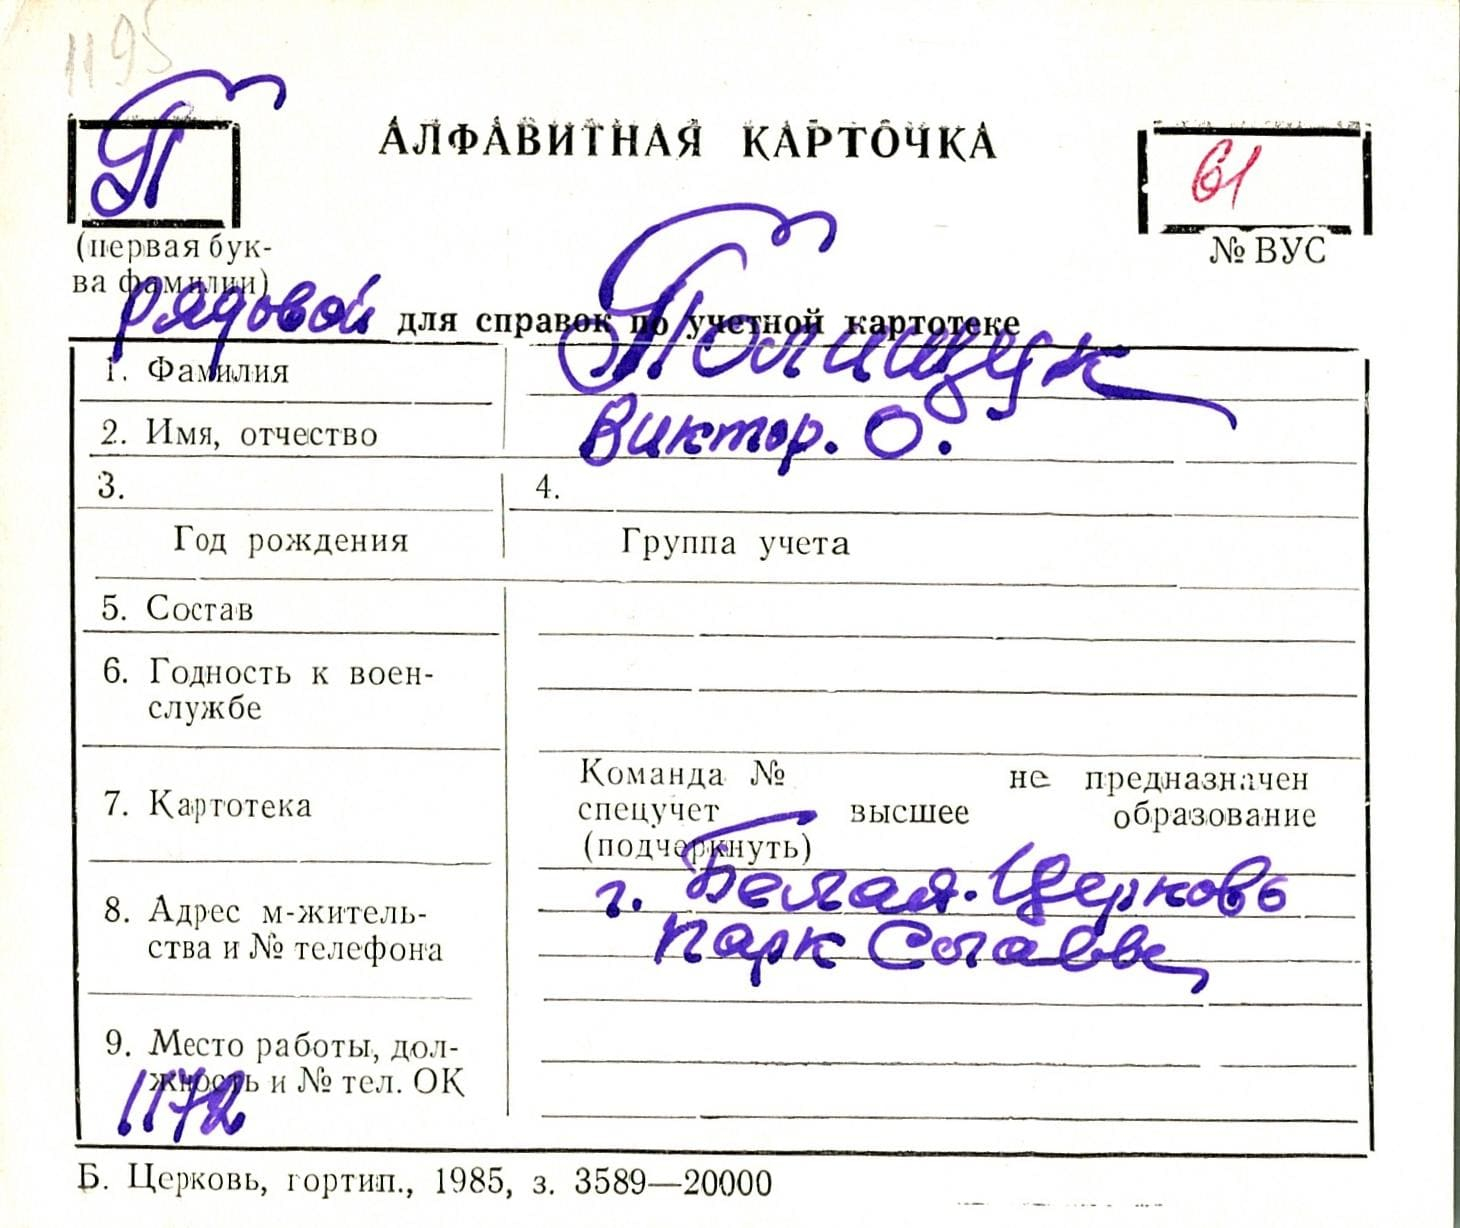 1195
П
АЛФАВИТНАЯ КАРТОЧКА
61
(первая бук-
ва фамилии)
№ ВУС
рядовой
для справок по учетной картотеке
1. Фамилия
Полищук
2. Имя, отчество
Виктор. О.
3.
4.
Год рождения
Группа учета
5. Состав
6. Годность к воен-
службе
7. Картотека
Команда № не предназначен
спецучет высшее образование
(подчеркнуть)
8. Адрес м-житель-
ства и № телефона
г. Белая-Церковь
парк Славы
9. Место работы, дол-
жность и № тел. ОК
1172
Б. Церковь, гортип., 1985, з. 3589—20000